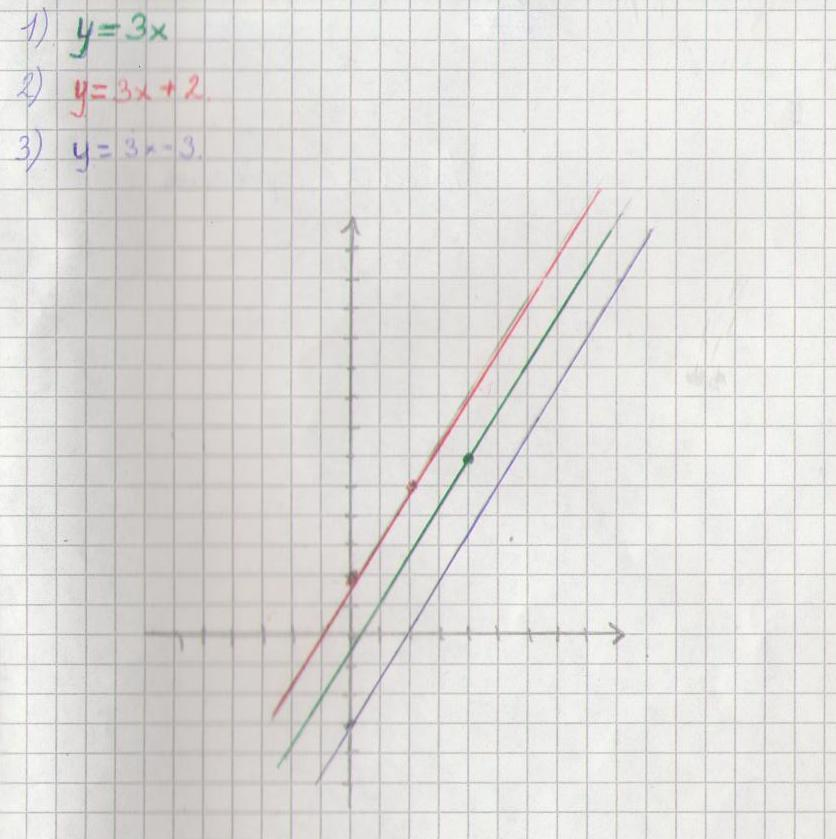 1) y = 3x
2) y = 3x + 2.
3) y = 3x - 3.